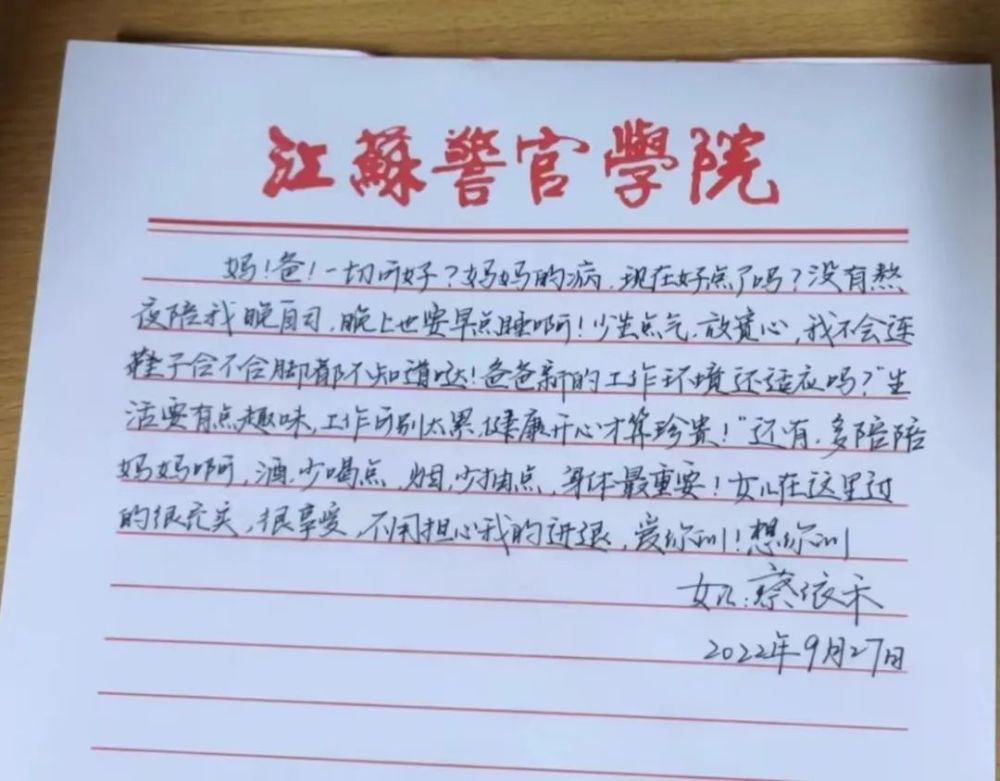 江蘇警官學院
妈!爸!一切可好?妈妈的病,现在好点了吗?没有熬
夜陪我晚自习,晚上也要早点睡啊!少生点气,放宽心,我不会连
鞋子合不合脚都不知道哒!爸爸新的工作环境还适应吗?"生
活要有点趣味,工作可别太累,健康开心才算珍贵!"还有,多陪陪
妈妈啊,酒,少喝点,烟,少抽点,身体最重要!女儿在这里过
的很充实,很享受,不用担心我的进退,爱你们!想你们!
女儿:蔡依禾
2022年9月27日